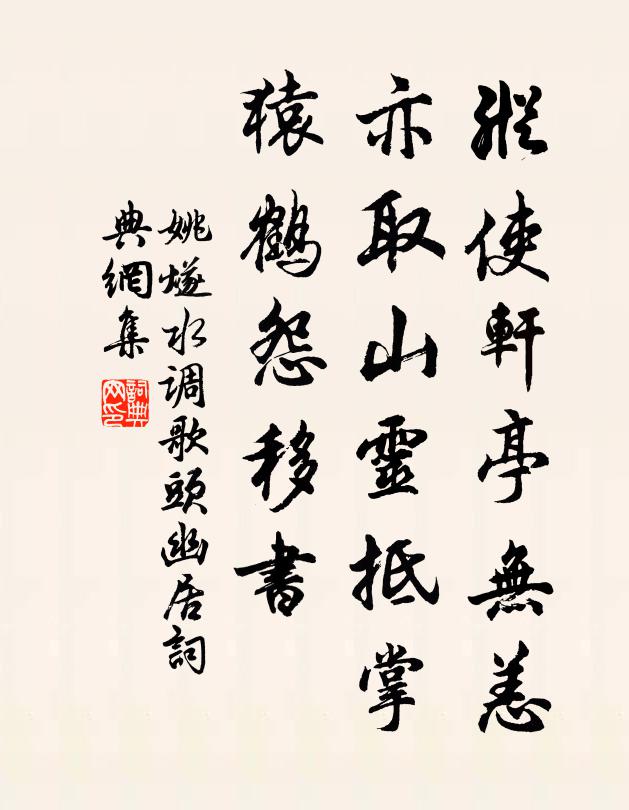 縱使軒亭無恙
亦取山靈抵掌
猿鶴怨移書
姚燧水调歌頭幽居詞
典網集
詞典網印